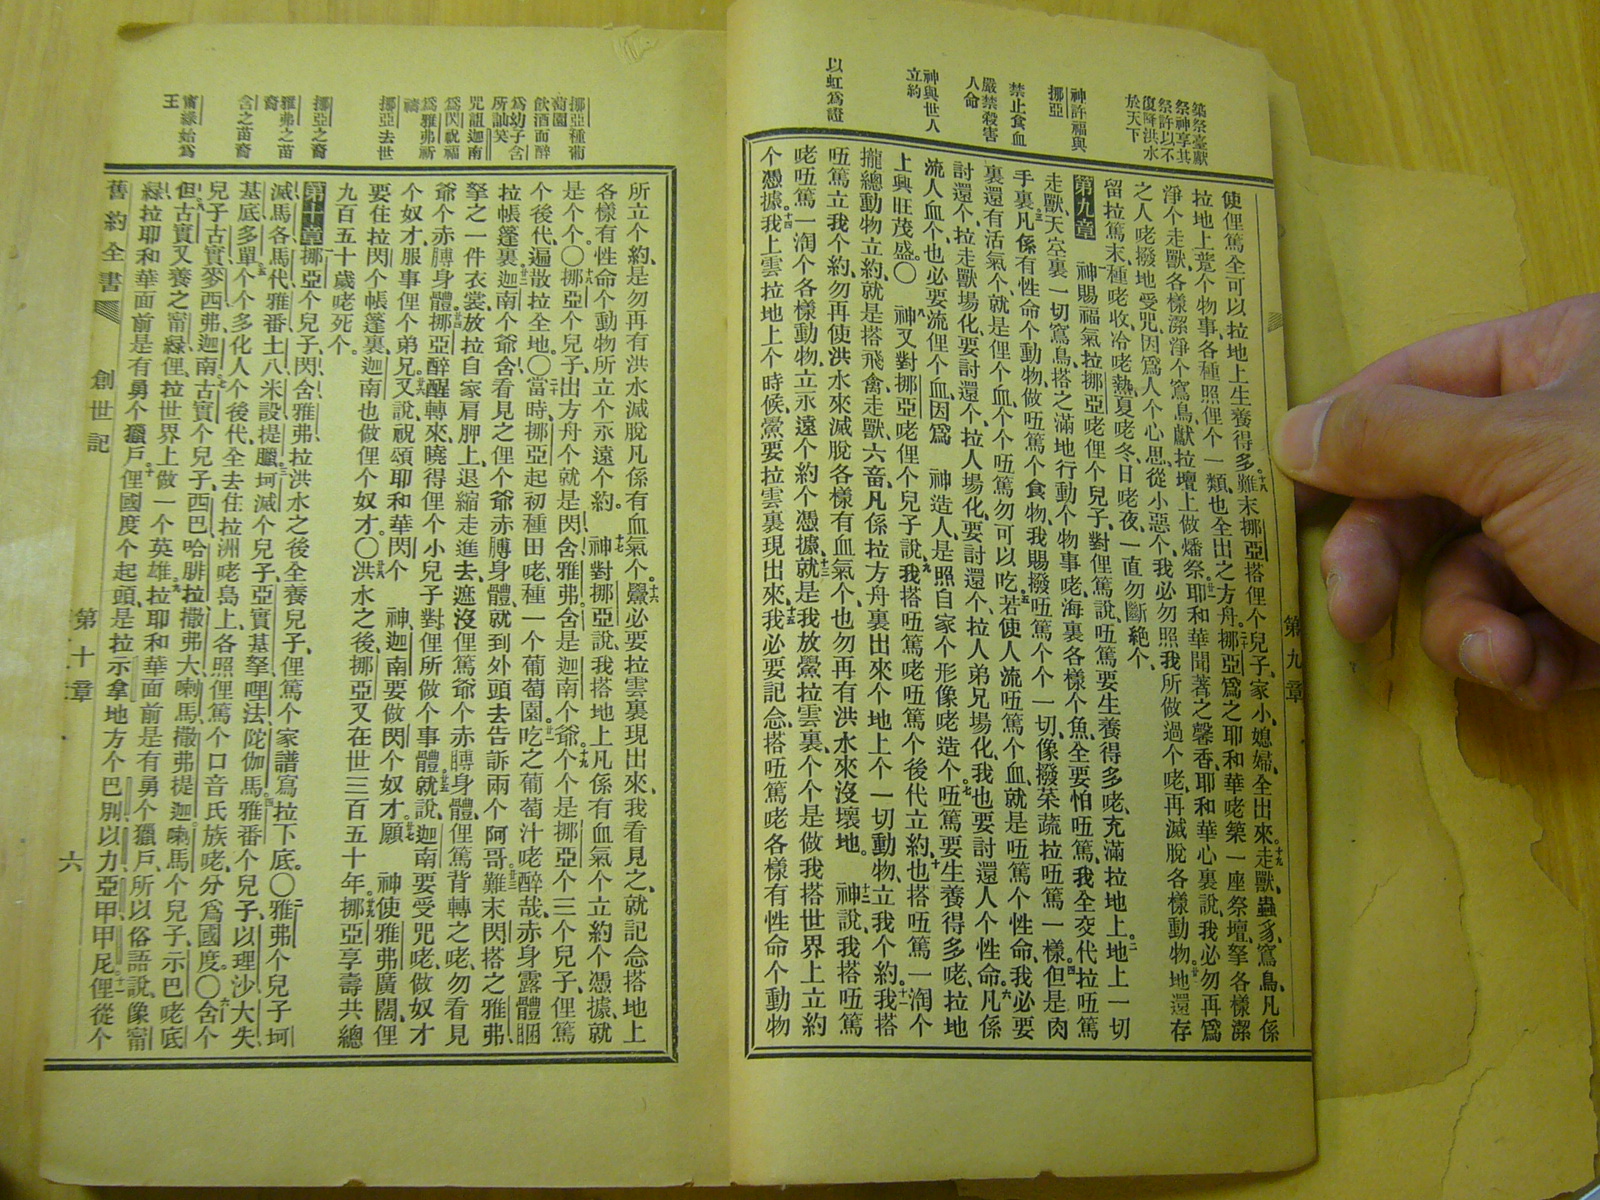 築祭臺獻
祭神享其
祭許以不
復降洪水
於天下
神許福與
挪亞
禁止食血
嚴禁殺害
人命
神與世人
立約
以虹爲證
使俚篤全可以拉地上生養得多。十八難末挪亞搭俚个兒子、家小、媳婦、全出來。十九走獸、蟲豸、窵鳥、凡係
拉地上躄个物事、各種照俚个一類、也全出之方舟。二十挪亞爲之耶和華咾築一座祭壇、拏各樣潔
淨个走獸、各樣潔淨个窵鳥、獻拉壇上做燔祭。廿一耶和華聞著之馨香、耶和華心裏說、我必勿再爲
之人咾撥地受咒、因爲人个心思、從小惡个、我必勿照我所做過个咾、再滅脫各樣動物。廿二地還存
留拉篤末、種咾收、冷咾熱、夏咾冬、日咾夜、一直勿斷絕个、
第九章 一神賜福氣拉挪亞咾俚个兒子、對俚篤說、吾篤要生養得多咾、充滿拉地上。二地上一切
走獸、天空裏一切窵鳥、搭之滿地行動个物事咾、海裏各樣个魚、全要怕吾篤、我全交代拉吾篤
手裏。三凡係有性命个動物、做吾篤个食物、我賜撥吾篤个个一切、像撥菜蔬拉吾篤一樣。四但是肉
裏還有活氣个、就是俚个血、个个吾篤勿可以吃。五若使人流吾篤个血、就是吾篤个性命、我必要
討還个、拉走獸場化、要討還个、拉人場化、要討个、拉人弟兄場化、我也要討還人个性命。六凡係
流人血个、也必要流俚个血、因爲 神造人、是照自家个形像咾造个。七吾篤要生養得多咾、拉地
上興旺茂盛。〇八神又對挪亞咾俚个兒子說、九我搭吾篤咾吾篤个後代立約、十也搭吾篤一淘个
攏總動物立約、就是搭飛禽、走獸、六畜、凡係拉方舟裏出來个地上个一切動物、立我个約。十一我搭
吾篤立我个約、勿再使洪水來滅脫各樣有血氣个、也勿再有洪水來沒壞地。十二神說、我搭吾篤
咾吾篤一淘个各樣動物、立永遠个約个憑據、就是十三我放鱟拉雲裏、个个是做我搭世界上立約
个憑據。十四我上雲拉地上个時候、鱟要拉雲裏現出來、十五我必要記念搭吾篤咾各樣有性命个動物
第九章
挪亞種葡
萄園
飲酒而醉
爲幼子含
所訕笑
咒詛迦南
爲閃祝福
爲雅弗祈
禱
挪亞去世
挪亞之裔
雅弗之苗
裔
含之苗裔
甯祿始爲
王
所立个約、是勿再有洪水滅脫凡係有血氣个。十六鱟必要拉雲裏現出來、我看見之、就記念搭地上
各樣有性命个動物所立个永遠个約。十七神對挪亞說、我搭地上凡係有血氣个立約个憑據、就
是个个〇十八挪亞个兒子、出方舟个就是閃、含、雅弗、含是迦南个爺。十九个个是挪亞个三个兒子、俚篤
个後代、遍散拉全地。〇二十當時、挪亞起初種田咾、種一个葡萄園、廿一吃之葡萄汁咾醉哉、赤身露體睏
拉帳篷裏。廿二迦南个爺含看見之俚个爺赤膊身體、就到外頭去告訴兩个阿哥。廿三難末閃搭之雅弗、
拏之一件衣裳、放拉自家肩胛上、退縮走進去、遮沒俚篤爺个赤膊身體、俚篤背轉之咾、勿看見
爺个赤膊身體。廿四挪亞醉醒轉來、曉得俚个小兒子對俚所做个事體、廿五就說、迦南要受咒咾、做奴才
个奴才、服事俚个弟兄。廿六又說祝頌耶和華閃个 神、迦南要做閃个奴才。廿七願 神使雅弗廣闊、俚
要住拉閃个帳篷裏、迦南也做俚个奴才。〇廿八洪水之後、挪亞又在世三百五十年。廿九挪亞享壽共總
九百五十歲咾死个。
第十章 一挪亞个兒子、閃、含、雅弗、拉洪水之後、全養兒子、俚篤个家譜寫拉下底。〇二雅弗个兒子、坷
滅、馬各、馬代、雅番、土八、米設、提臘。三坷滅个兒子、亞實基拏、哩法、陀伽馬。四雅番个兒子、以理沙、大失、
基底、多單。五个个多化人个後代、全去住拉洲咾島上、各照俚篤个口音氏族咾、分爲國度。〇六含个
兒子、古實、麥西、弗、迦南。七古實个兒子、西巴、哈腓拉、撒弗大、喇馬、撒弗提迦、喇馬个兒子、示巴咾底
但。八古實又養之甯祿、俚拉世界上做一个英雄。九拉耶和華面前是有勇个獵戶、所以俗語說、像甯
祿拉耶和華面前是有勇个獵戶。十俚國度个起頭、是拉示拿地方个巴別、以力、亞甲、甲尼。十一俚從个
舊約全書 創世記 第十章 六